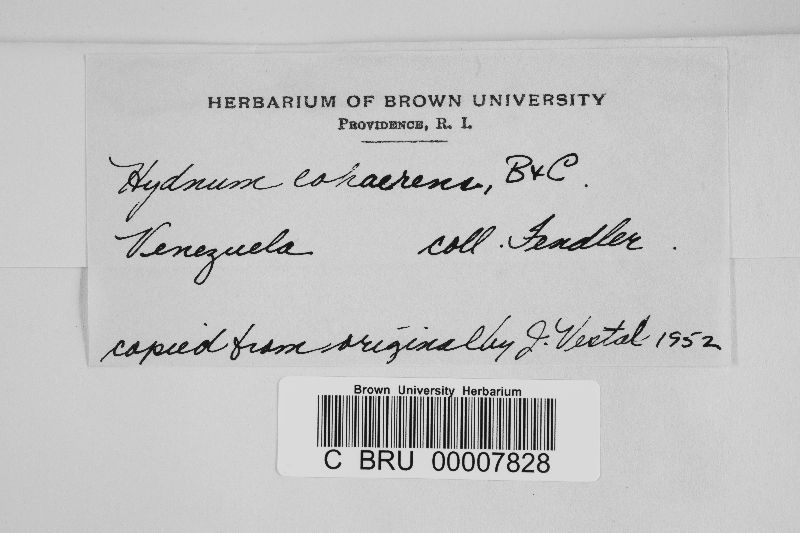 HERBARIUM OF BROWN UNIVERSITY
PROVIDENCE, R. I.
Hydnum cohaerens, B & C.
Venezuela coll. Fendler.
copied from original by J. Vestal 1952
Brown University Herbarium
C BRU 00007828